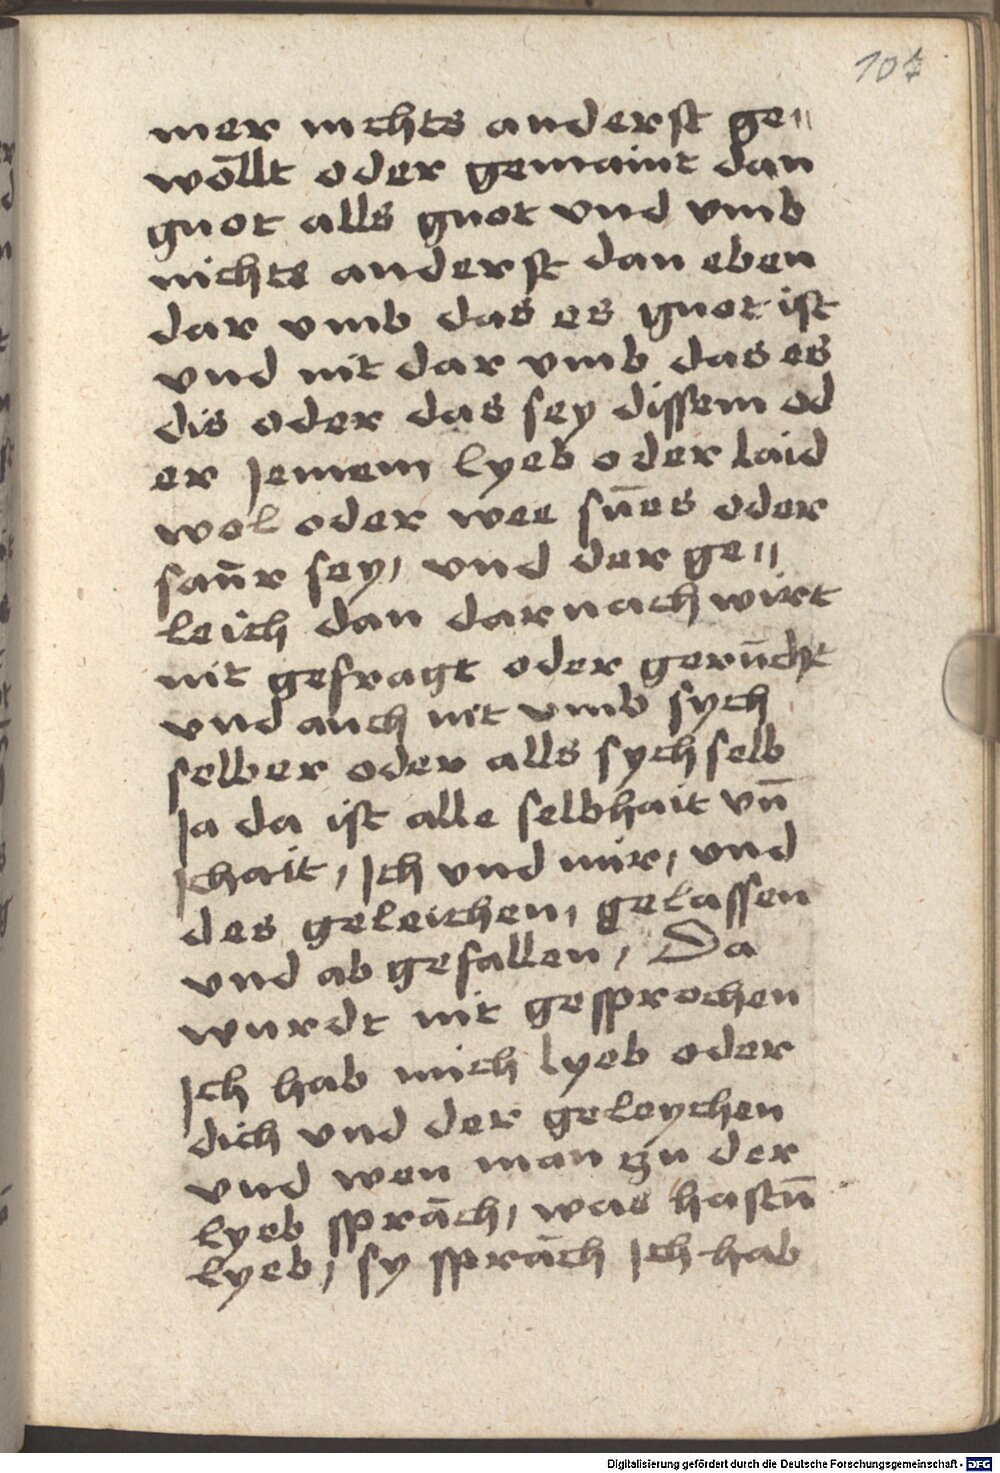 107
mer nichts anderst ge=
wo̅llt oder gemaint dan
guot alls guot vnd vmb
nichts anderst dan eben
dar vmb das es guot ist
vnd nit dar vmb das es
dis oder das sey dissem od
er Jemem lyeb oder laid
wol oder wee su̅es oder
sau̅r sey, vnd der ge=
leich dan darnach wirt
nit gefragt oder geru̅cht
vnd auch nit vmb sych
selber oder alls sych selb
Ja da ist alle selbhait vn̅
Jchait, Jch vnd mir, vnd
des geleichen, gelassen
vnd ab gefallen, Da
wurdt nit gesprochen
Jch hab mich lyeb oder
dich vnd der geleychen
vnd wen man zu der
lyeb spra̅ch, was hastu̅
lyeb, sy spra̅ch Jch hab
Digitalisierung gefördert durch die Deutsche Forschungsgemeinschaft - DFG